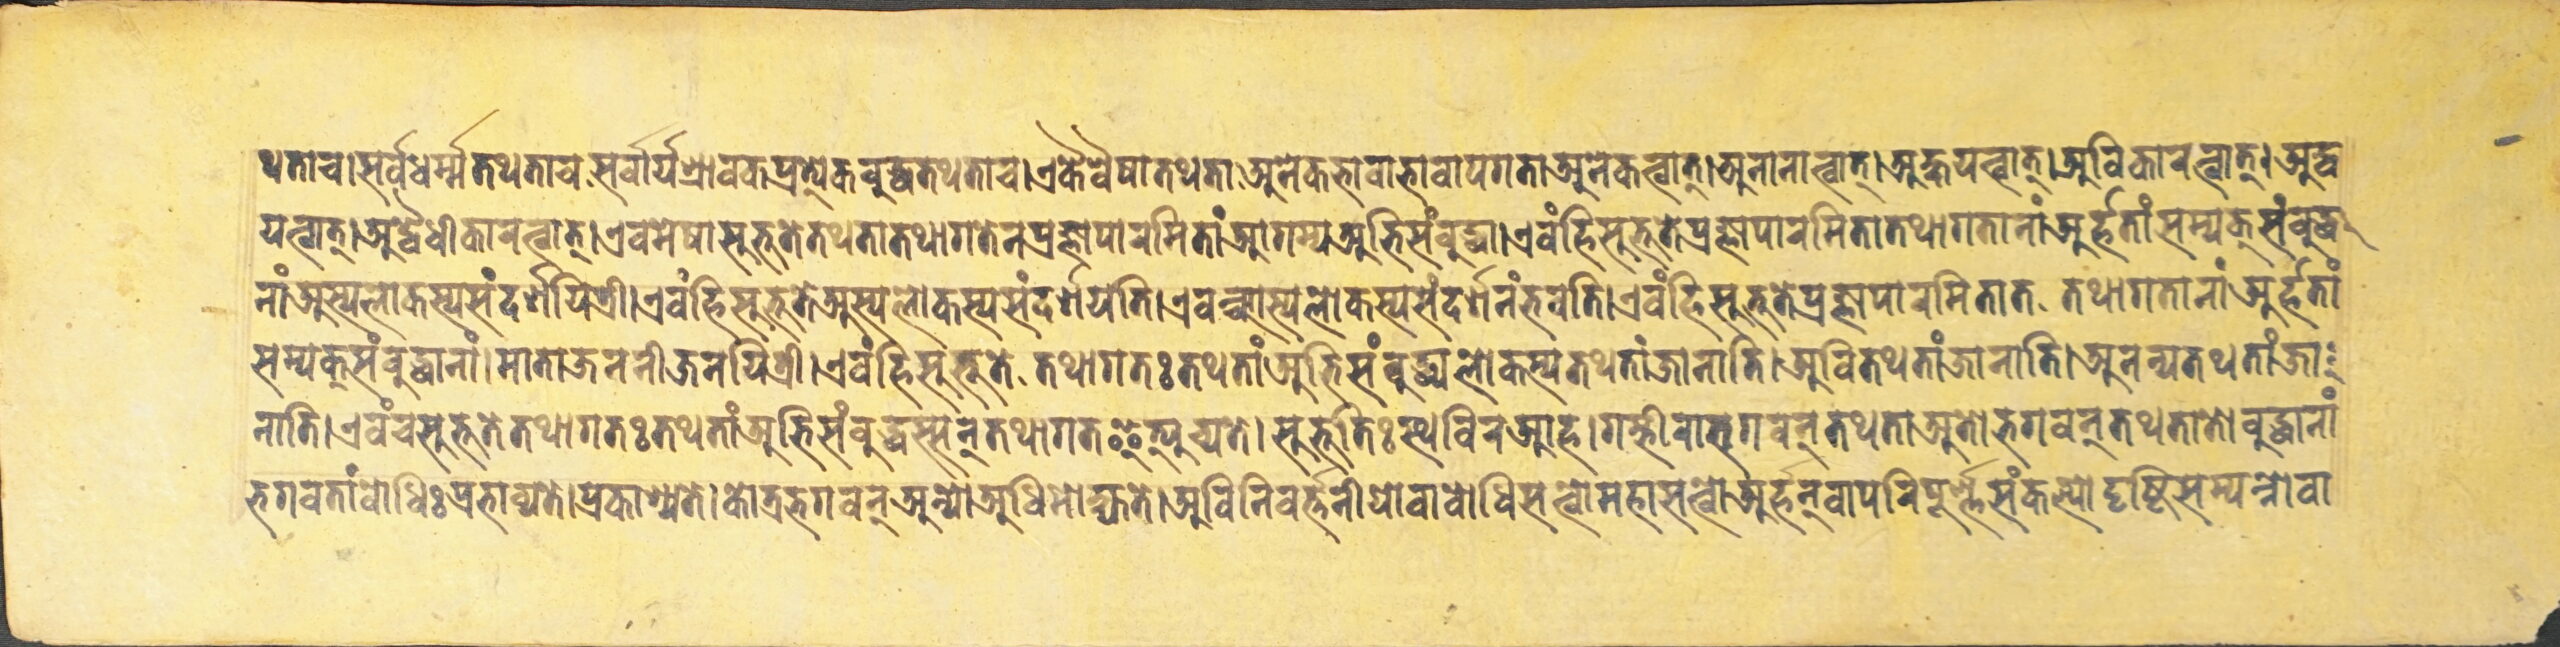 थताच।सर्वधर्म्मतथताच सर्वार्यश्रावकप्रत्येकबुद्धतथताच।एकैवैषातथता अनेकभावाभावापगताअनेकत्वात्।अनानात्वात्।अक्षयत्वात्।अविकारत्वात्।अद्व
यत्वात्।अद्वैधीकारत्वात्।एवमेषासुभूतेतथतातथागतेनप्रज्ञापारमितांआगम्यअभिसंबुद्धा।एवंहिसुभूतेप्रज्ञापारमितातथागतानांअर्हतांसम्यक्संबुद्धा
नांअस्यलोकस्यसंदर्शयित्री।एवंहिसुभूतेअस्यलोकस्यसंदर्शयति।एवञ्चास्यलोकस्यसंदर्शनंभवति।एवंहिसुभूतेप्रज्ञापारमितात तथागतानांअर्हतां
सम्यक्संबुद्धानां।माताजननीजनयित्री।एवंहिसुभूते तथागतःतथतांअभिसंबुद्ध्यलोकस्यतथतांजानाति।अवितथतांजानाति।अनन्यतथतांजा
नाति।एवंचसुभूतेतथागतःतथतांअभिसंबुद्धस्सन्तथागतइत्युच्यते।सुभूतिःस्थविरआह।गम्भीराभगवन्तथताअतोभगवन्तथतातोबुद्धानां
भगवतांबोधिःप्रभाव्यते।प्रकाश्यते।कोत्रभगवन्अन्योअधिमोक्ष्यते।अविनिवर्त्तनीयोवाबोधिसत्वोमहासत्वोअर्हन्वापरिपूर्ण्णसंकल्पोदृष्टिसम्पन्नोवा